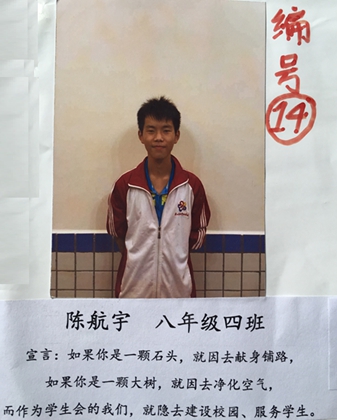 编号
14
陈航宇 八年级四班
宣言：如果你是一颗石头，就因去献身铺路，
如果你是一颗大树，就因去净化空气，
而作为学生会的我们，就隐去建设校园、服务学生。